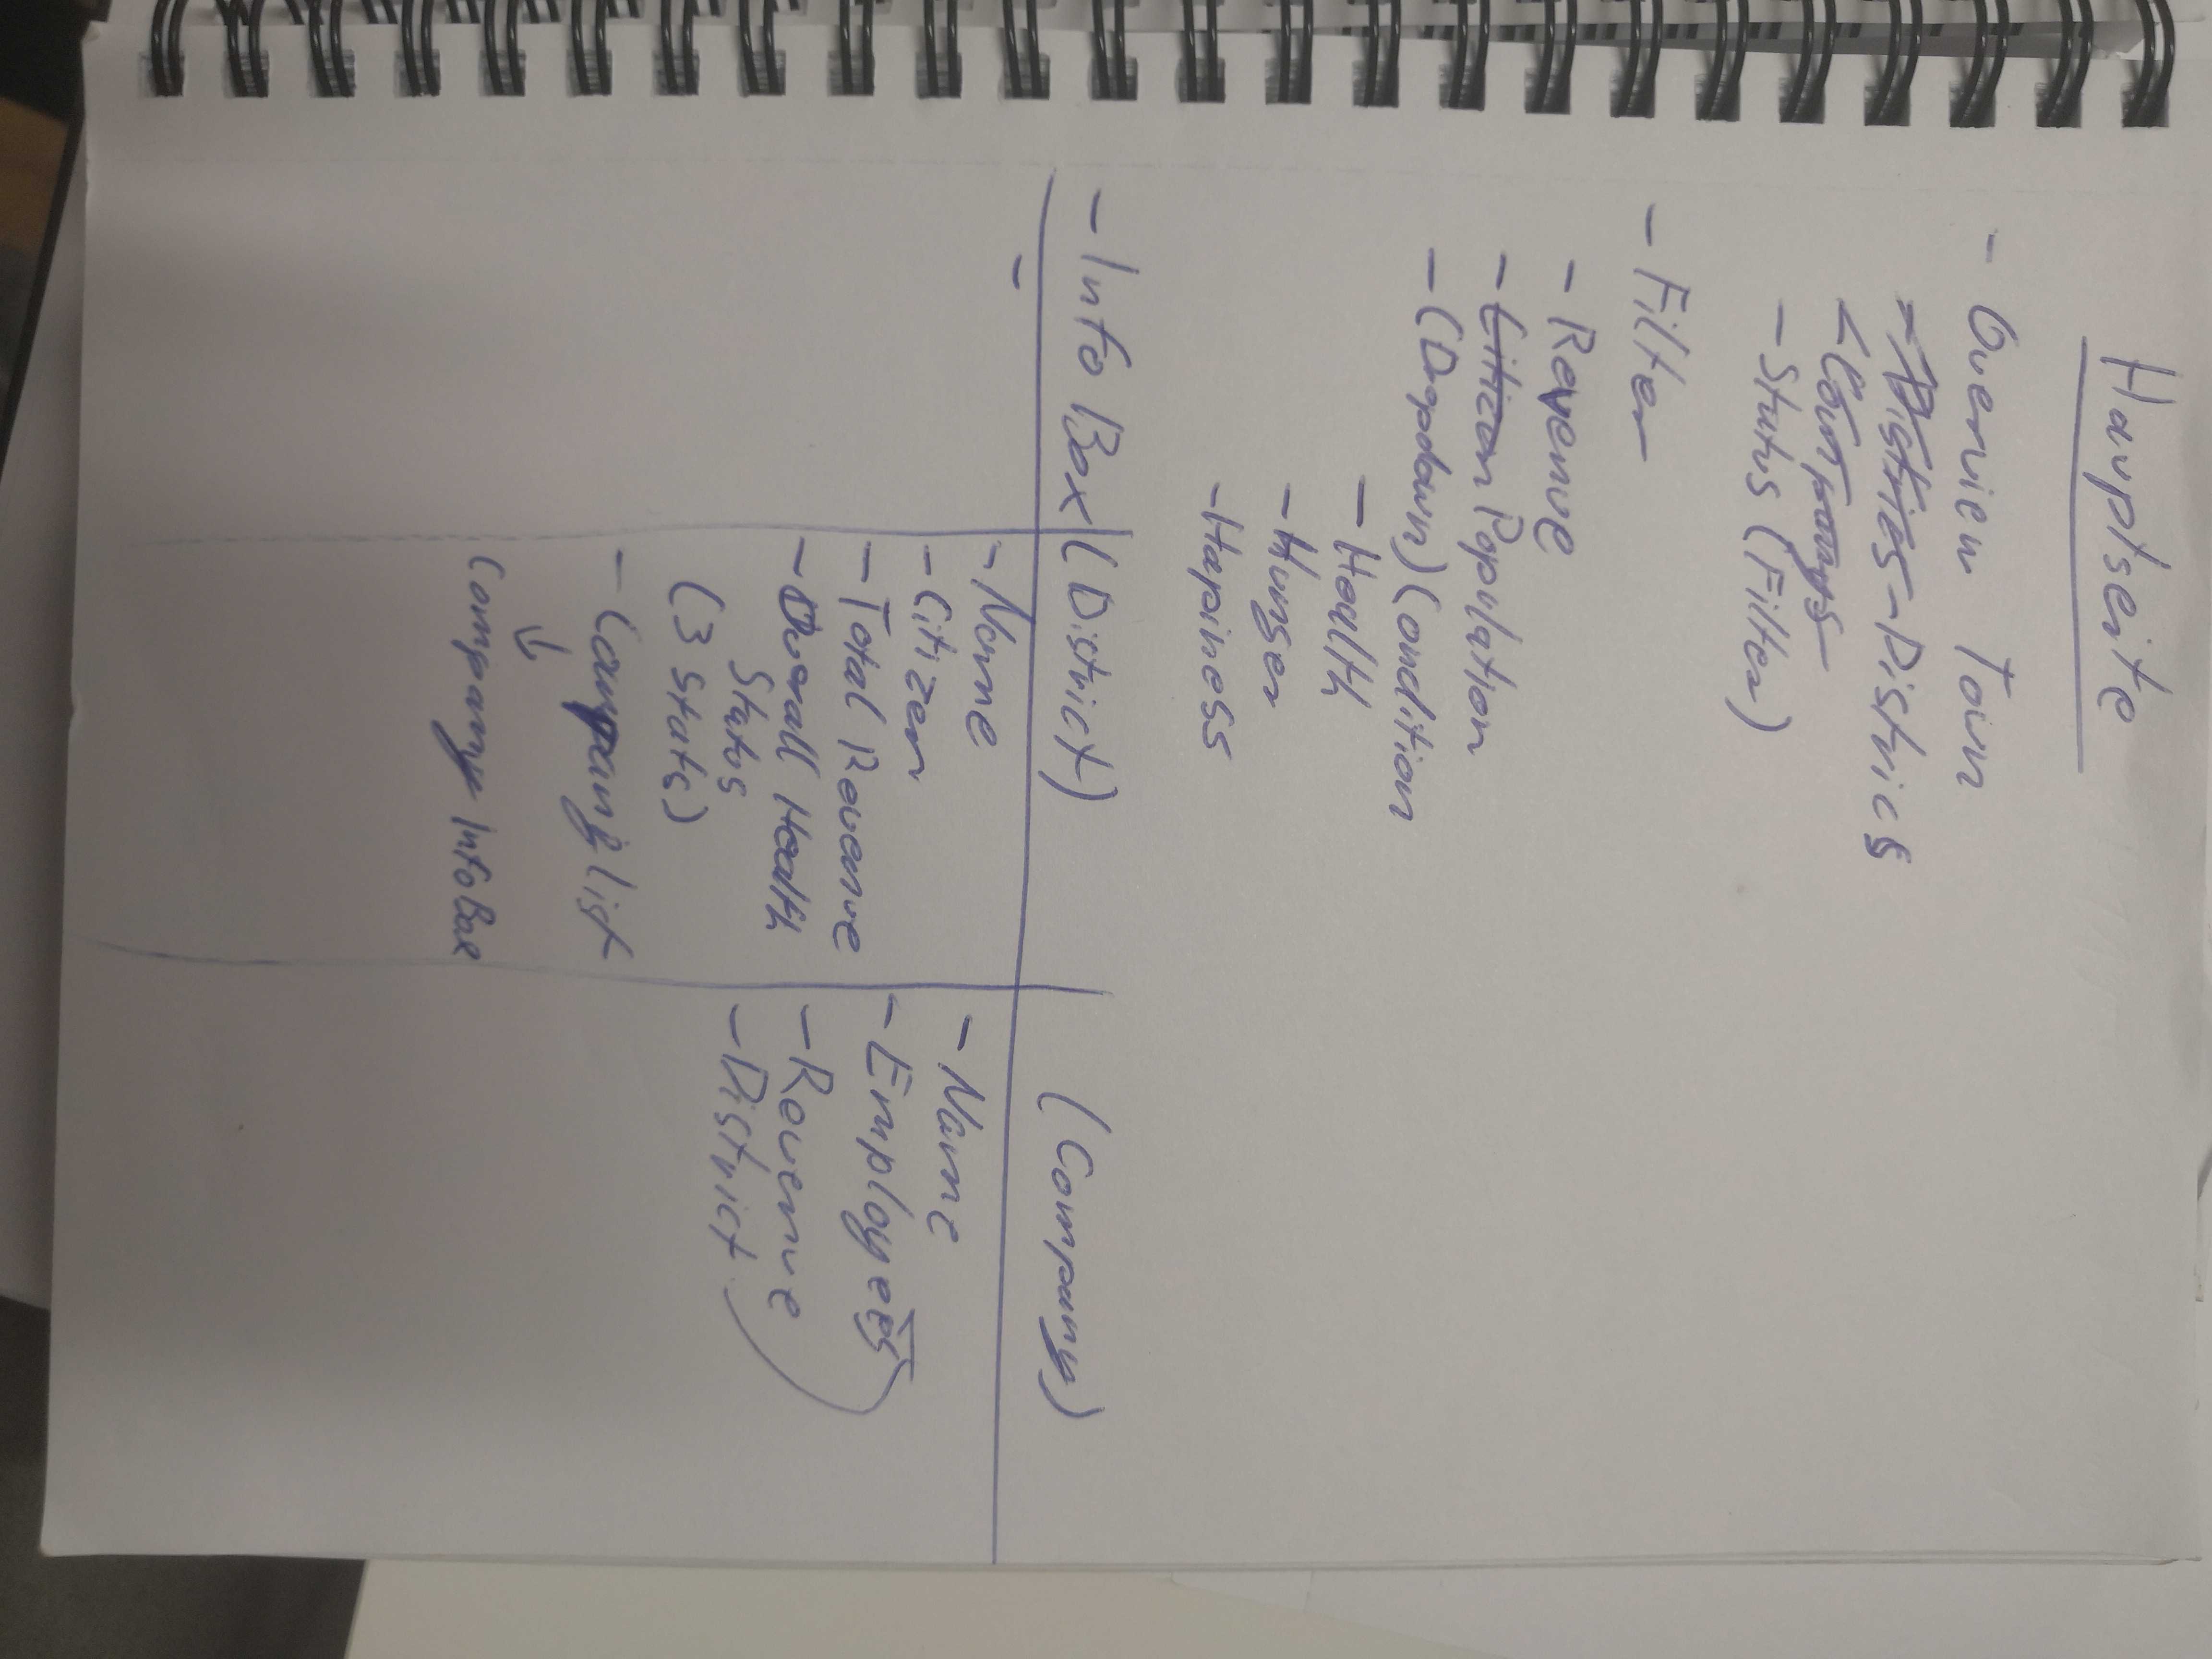 Hauptseite
- Overview Town
- Districs - Districs
- Companys
- Status (Filter)
- Filter
- Revenue
- Citizen Population
- (Dropdown) Condition
- Health
- Hunger
- Hapiness
- Info Box (District) (Company)
-
- Name
- Citizen
- Total Revenue
- Overall Health
Status
(3 Stats)
- Company list
↓
Company InfoBox
- Name
- Employees
- Revenue
- District